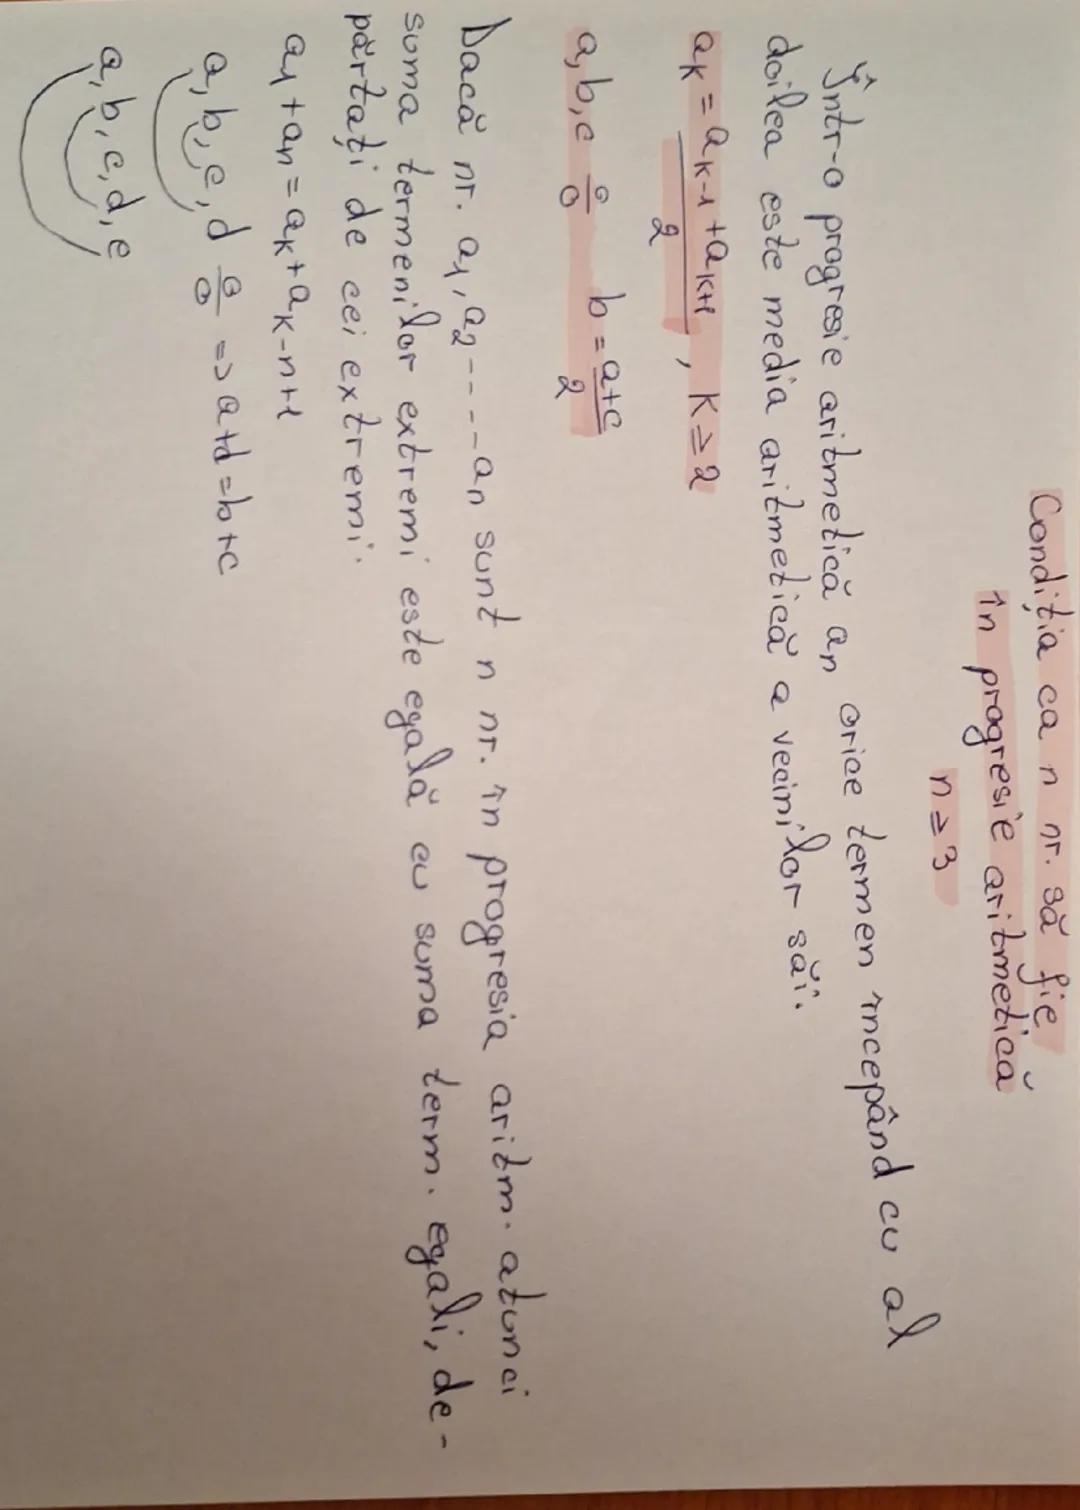 Condiția ca n nr. să fie
în progresie aritmetică
n ≥ 3
Într-o progresie aritmetică an orice termen începând cu al
doilea este media aritmetică a vecinilor săi.
aₖ = aₖ₋₁ + aₖ₊₁ / 2 , K ≥ 2
a, b, c ÷ b = a+c / 2
Dacă nr. a₁, a₂ ---- aₙ sunt n nr. în progresia aritm. atunci
suma termenilor extremi este egală cu suma term. egali, de-
părtați de cei extremi.
a₁ + aₙ = aₖ + aₖ₋ₙ₊₁
a, b, c, d ÷ => a+d = b+c
a, b, c, d, e